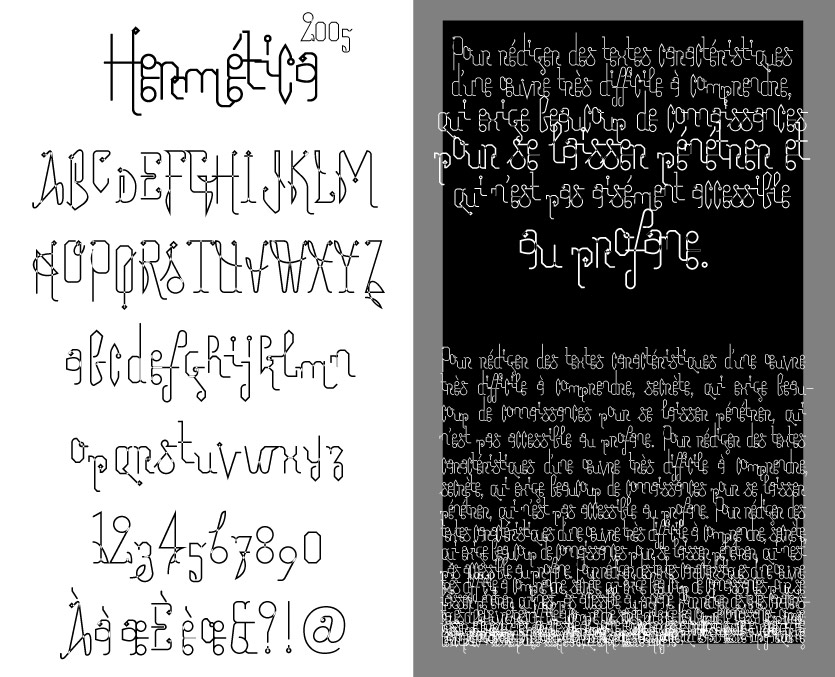 Hermética
2005
ABCDEFGHIJKLM
NOPQRSTUVWXYZ
abcdefghijklmn
opqrstuvwxyz
1234567890
ÀàæÈèœ&?!@
Pour rédiger des textes caractéristiques
d'une œuvre très difficile à comprendre,
qui exige beaucoup de connaissances
pour se laisser pénétrer et
qui n'est pas aisément accessible
au profane.
Pour rédiger des textes caractéristiques d'une œuvre
très difficile à comprendre, secrète, qui exige beau-
coup de connaissances pour se laisser pénétrer, qui
n'est pas accessible au profane. Pour rédiger des textes
caractéristiques d'une œuvre très difficile à comprendre,
secrète, qui exige beaucoup de connaissances pour se laisser
pénétrer, qui n'est pas accessible au profane. Pour rédiger des
textes caractéristiques d'une œuvre très difficile à comprendre, secrète
qui exige beaucoup de connaissances pour se laisser pénétrer, qui n'est
pas accessible au profane. Pour rédiger des textes caractéristiques d'une œuvre